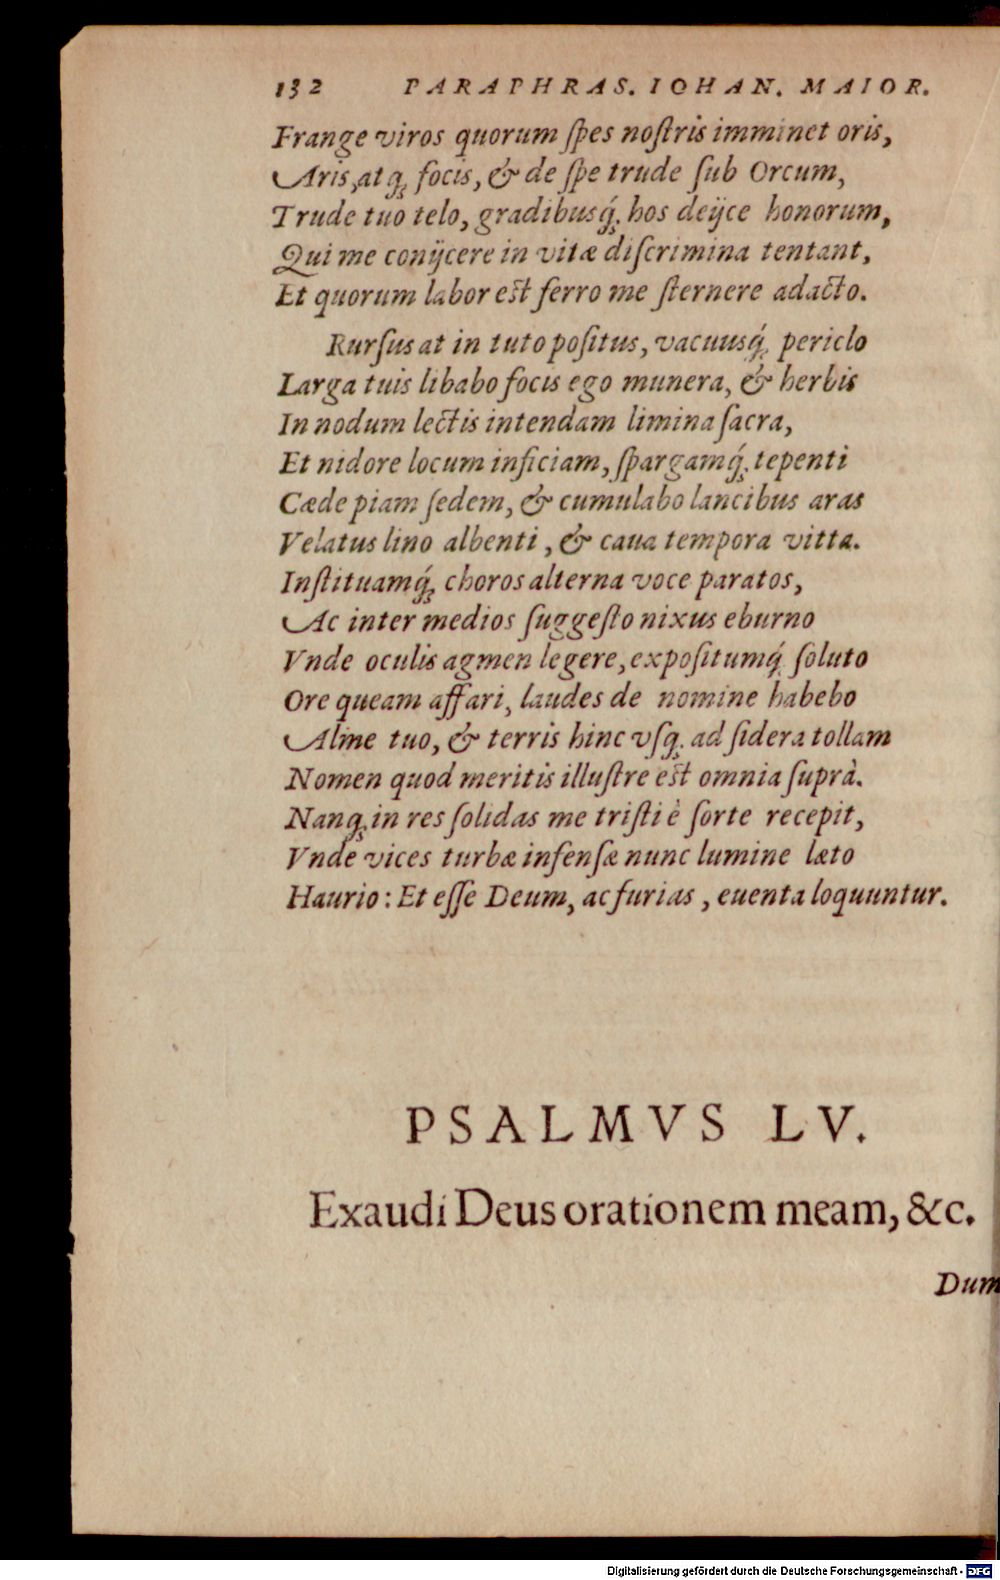 132 PARAPHRAS. IOHAN. MAIOR.
Frange viros quorum ſpes noſtris imminet oris,
Aris, atq; focis, & de ſpe trude ſub Orcum,
Trude tuo telo, gradibusq́; hos deijce honorum,
Qui me conijcere in vitæ diſcrimina tentant,
Et quorum labor est ferro me ſternere adacto.
Rurſus at in tuto poſitus, vacuusq́; periclo
Larga tuis libabo focis ego munera, & herbis
In nodum lectis intendam limina ſacra,
Et nidore locum inficiam, ſpargamq́; tepenti
Cæde piam ſedem, & cumulabo lancibus aras
Velatus lino albenti, & caua tempora vitta.
Inſtituamq́; choros alterna voce paratos,
Ac inter medios ſuggeſto nixus eburno
Vnde oculis agmen legere, expoſitumq́; ſoluto
Ore queam affari, laudes de nomine habebo
Alme tuo, & terris hinc vſq; ad ſidera tollam
Nomen quod meritis illuſtre est omnia ſuprà.
Nanq; in res ſolidas me triſti è ſorte recepit,
Vnde vices turbæ infenſæ nunc lumine læto
Haurio: Et eſſe Deum, ac furias, euenta loquuntur.
PSALMVS LV.
Exaudi Deus orationem meam, &c.
Dum
Digitalisierung gefördert durch die Deutsche Forschungsgemeinschaft - DFG